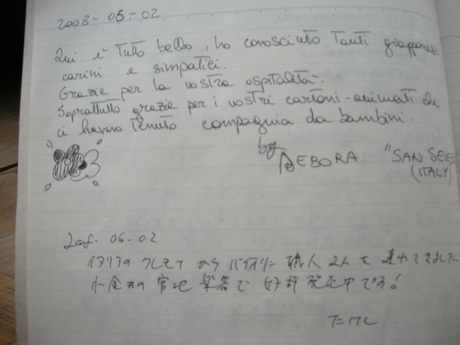 2008-06-02
Qui è tutto bello, ho conosciuto tanti giappone
carini e simpatici.
Grazie per la vostra ospitalità.
Soprattutto grazie per i vostri cartoni-animati che
ci hanno tenuto compagnia da bambini.
by DEBORA "SAN SE
(ITALY)
06-02
イタリアの クレモナ から バイオリン 職人 2人 を 連れてきました
楽器で 好評 発売中です!